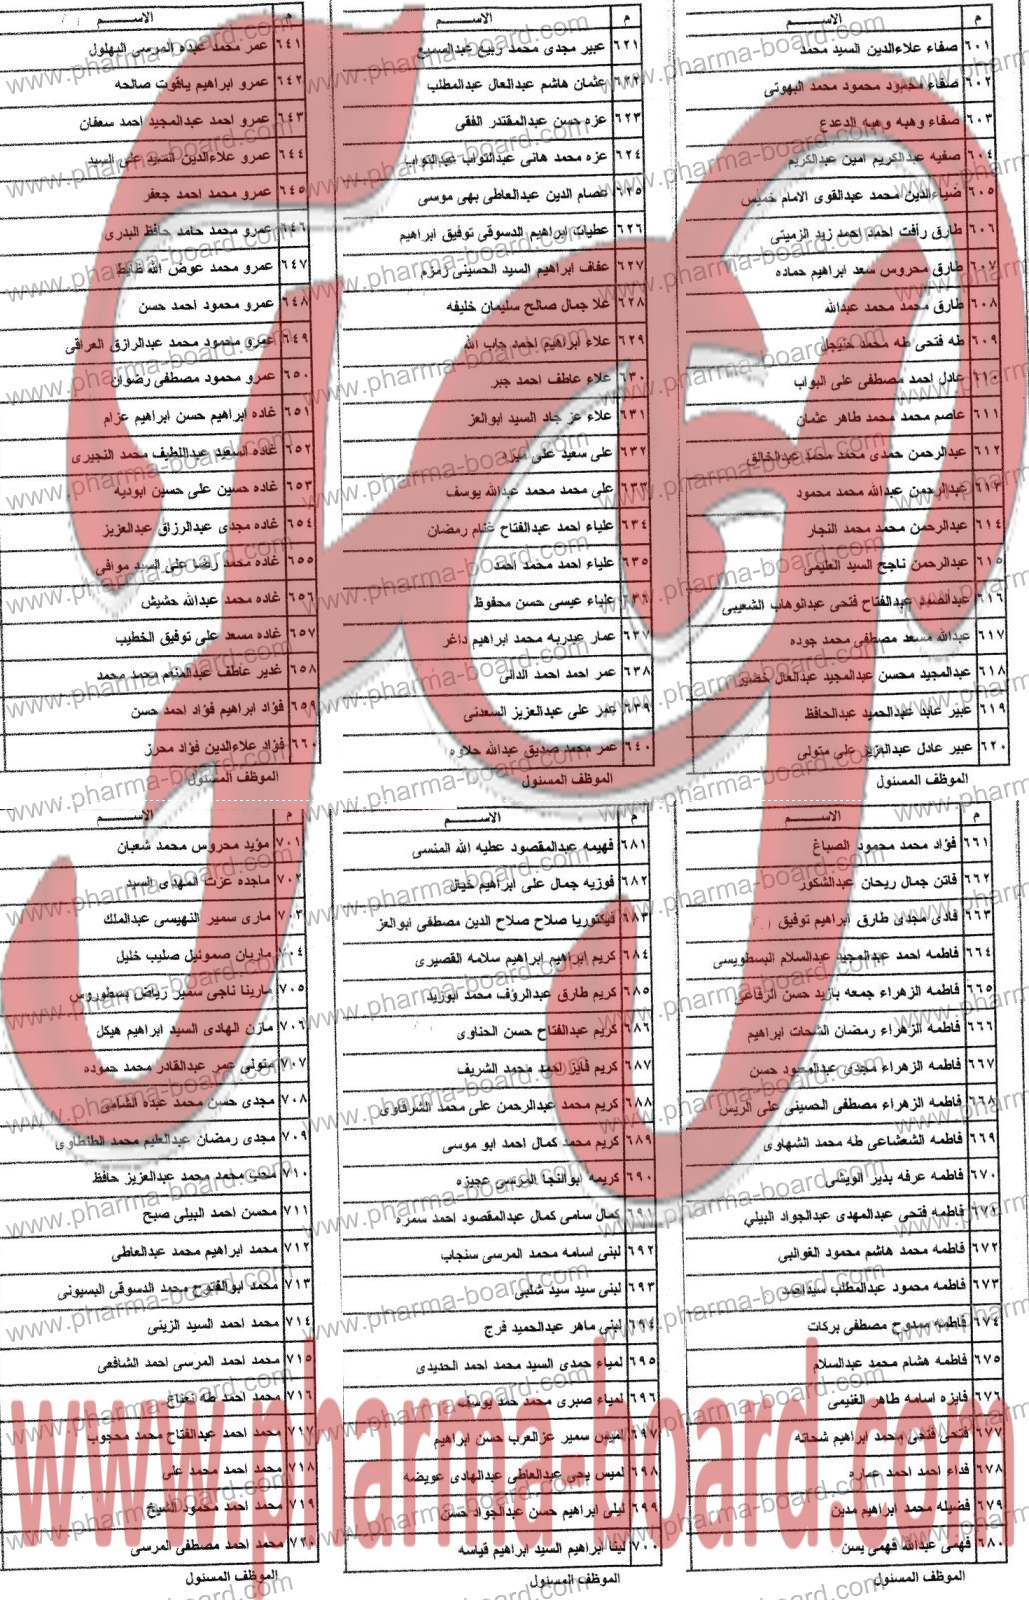 م الاســـم
٦٠١ صفاء علاءالدين السيد محمد
٦٠٢ صفاء محمود محمود محمد البهوتى
٦٠٣ صفاء وهبه وهبه الدعدع
٦٠٤ صفيه عبدالكريم امين عبدالكريم
٦٠٥ ضياءالدين محمد عبدالقوى الامام خميس
٦٠٦ طارق رأفت احمد احمد زيد الزميتى
٦٠٧ طارق محروس سعد ابراهيم حماده
٦٠٨ طارق محمد محمد عبدالله
٦٠٩ طه فتحى طه محمد
٦١٠ عادل احمد مصطفى على البواب
٦١١ عاصم محمد محمد طاهر عثمان
٦١٢ عبدالرحمن حمدى محمد محمد عبدالخالق
٦١٣ عبدالرحمن عبدالله محمد محمود
٦١٤ عبدالرحمن محمد محمد النجار
٦١٥ عبدالرحمن ناجح السيد العليمى
٦١٦ عبدالصمد عبدالفتاح فتحى عبدالوهاب الشعيبى
٦١٧ عبدالله مسعد مصطفى محمد جوده
٦١٨ عبدالمجيد محسن عبدالمجيد عبدالعال خضير
٦١٩ عبير عابد عبدالحميد عبدالحافظ
٦٢٠ عبير عادل عبدالعزيز على متولى
الموظف المسئول
م الاســـم
٦٢١ عبير مجدى محمد ربيع عبدالسميع
٦٢٢ عثمان هاشم عبدالعال عبدالمطلب
٦٢٣ عزه حسن عبدالمقتدر الفقى
٦٢٤ عزه محمد هانى عبدالتواب عبدالتواب
٦٢٥ عصام الدين عبدالعاطى بهى موسى
٦٢٦ عطيات ابراهيم الدسوقى توفيق ابراهيم
٦٢٧ عفاف ابراهيم السيد الحسينى زمزم
٦٢٨ علا جمال صالح سليمان خليفه
٦٢٩ علاء ابراهيم احمد جاب الله
٦٣٠ علاء عاطف احمد جبر
٦٣١ علاء عز جاد السيد ابوالعز
٦٣٢ على سعيد على
٦٣٣ على محمد محمد عبدالله يوسف
٦٣٤ علياء احمد عبدالفتاح غنام رمضان
٦٣٥ علياء احمد محمد احمد
٦٣٦ علياء عيسى حسن محفوظ
٦٣٧ عمار عبدربه محمد ابراهيم داغر
٦٣٨ عمر احمد احمد الدالى
٦٣٩ عمر على عبدالعزيز السعدنى
٦٤٠ عمر محمد صديق عبدالله حلاوه
الموظف المسئول
م الاســـم
٦٤١ عمر محمد عبده المرسى البهلول
٦٤٢ عمرو ابراهيم ياقوت صالحه
٦٤٣ عمرو احمد عبدالمجيد احمد سعفان
٦٤٤ عمرو علاءالدين السيد على السيد
٦٤٥ عمرو محمد احمد جعفر
٦٤٦ عمرو محمد حامد حافظ البدرى
٦٤٧ عمرو محمد عوض الله
٦٤٨ عمرو محمود احمد حسن
٦٤٩ عمرو محمود محمد عبدالرازق العراقى
٦٥٠ عمرو محمود مصطفى رضوان
٦٥١ غاده ابراهيم حسن ابراهيم عزام
٦٥٢ غاده السعيد عبداللطيف محمد النجيرى
٦٥٣ غاده حسين على حسين ابوديه
٦٥٤ غاده مجدى عبدالرزاق عبدالعزيز
٦٥٥ غاده محمد رضا على السيد موافى
٦٥٦ غاده محمد عبدالله حشيش
٦٥٧ غاده مسعد على توفيق الخطيب
٦٥٨ غدير عاطف عبدالمنعم محمد محمد
٦٥٩ فؤاد ابراهيم فؤاد احمد حسن
٦٦٠ فؤاد علاءالدين فؤاد محرز
الموظف المسئول
م الاســـم
٦٦١ فؤاد محمد محمود الصباغ
٦٦٢ فاتن جمال ريحان عبدالشكور
٦٦٣ فادى مجدى طارق ابراهيم توفيق
٦٦٤ فاطمه احمد عبدالمجيد عبدالسلام البسطويسى
٦٦٥ فاطمه الزهراء جمعه بازيد حسن الرفاعى
٦٦٦ فاطمه الزهراء رمضان الشحات ابراهيم
٦٦٧ فاطمه الزهراء مجدى عبدالمعبود حسن
٦٦٨ فاطمه الزهراء مصطفى الحسينى على الريس
٦٦٩ فاطمه الشعشاعى طه محمد الشهاوى
٦٧٠ فاطمه عرفه بدير الويشى
٦٧١ فاطمه فتحى عبدالمهدى عبدالجواد البيلي
٦٧٢ فاطمه محمد هاشم محمود الغوالبى
٦٧٣ فاطمه محمود عبدالمطلب سيداحمد
٦٧٤ فاطمه ممدوح مصطفى بركات
٦٧٥ فاطمه هشام محمد عبدالسلام
٦٧٦ فايزه اسامه طاهر الغنيمى
٦٧٧ فتحى فتحى محمد ابراهيم شحاته
٦٧٨ فداء احمد احمد عماره
٦٧٩ فضيله محمد ابراهيم مدين
٦٨٠ فهمى عبدالله فهمى يسن
الموظف المسئول
م الاســـم
٦٨١ فهيمه عبدالمقصود عطيه الله المنسى
٦٨٢ فوزيه جمال على ابراهيم خيال
٦٨٣ فيكتوريا صلاح صلاح الدين مصطفى ابوالعز
٦٨٤ كريم ابراهيم ابراهيم سلامه القصيرى
٦٨٥ كريم طارق عبدالرؤف محمد ابوزيد
٦٨٦ كريم عبدالفتاح حسن الحناوى
٦٨٧ كريم فايز احمد محمد الشريف
٦٨٨ كريم محمد عبدالرحمن على محمد الشرقاوى
٦٨٩ كريم محمد كمال احمد ابو موسى
٦٩٠ كريمه ابوالنجا المرسى عجيزه
٦٩١ كمال سامى كمال عبدالمقصود احمد سمره
٦٩٢ لبنى اسامه محمد المرسى سنجاب
٦٩٣ لبنى سيد سيد شلبى
٦٩٤ لبنى ماهر عبدالحميد فرج
٦٩٥ لمياء حمدى السيد محمد احمد الحديدى
٦٩٦ لمياء صبرى محمد حمد يوسف
٦٩٧ لميس سمير عزالعرب حسن ابراهيم
٦٩٨ لميس يحى عبدالعاطى عبدالهادى عويضه
٦٩٩ ليلى ابراهيم حسن عبدالجواد حسن
٧٠٠ لينا ابراهيم السيد ابراهيم قياسه
الموظف المسئول
م الاســـم
٧٠١ مؤيد محروس محمد شعبان
٧٠٢ ماجده عزت المهدى السيد
٧٠٣ مارى سمير النهيسى عبدالملك
٧٠٤ ماريان صموئيل صليب خليل
٧٠٥ مارينا ناجى سمير رياض بسطوروس
٧٠٦ مازن الهادى السيد ابراهيم هيكل
٧٠٧ متولى عمر عبدالقادر محمد حموده
٧٠٨ مجدى حسن محمد عبده الشامى
٧٠٩ مجدى رمضان عبدالعليم محمد الطنطاوى
٧١٠ محب محمد محمد عبدالعزيز حافظ
٧١١ محسن احمد البيلى صبح
٧١٢ محمد ابراهيم محمد عبدالعاطى
٧١٣ محمد ابوالفتوح محمد الدسوقى البسيونى
٧١٤ محمد احمد السيد الزينى
٧١٥ محمد احمد المرسى احمد الشافعى
٧١٦ محمد احمد طه نعناع
٧١٧ محمد احمد عبدالفتاح محمد محجوب
٧١٨ محمد احمد محمد على
٧١٩ محمد احمد محمود الشيخ
٧٢٠ محمد احمد مصطفى المرسى
الموظف المسئول
www.pharma-board.com